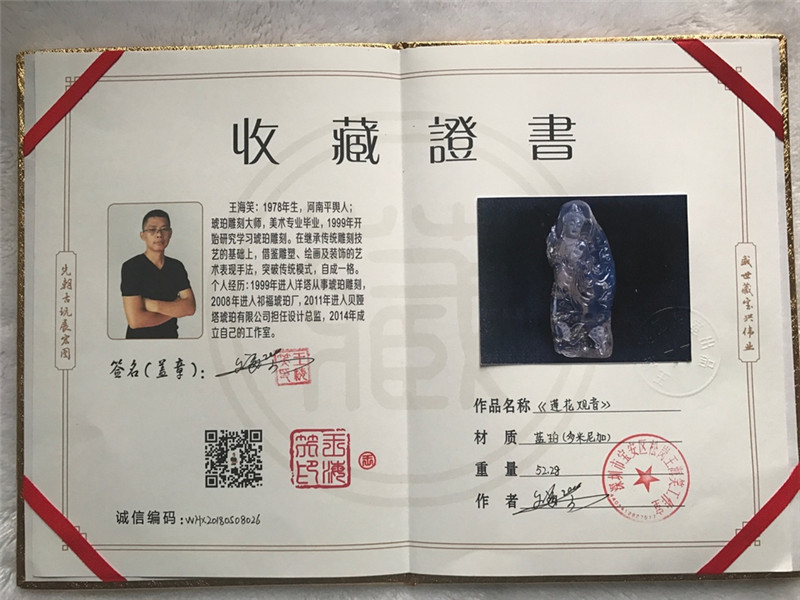 收藏證書
王海笑：1978年生，河南平舆人；
琥珀雕刻大师，美术专业毕业，1999年开
始研究学习琥珀雕刻。在继承传统雕刻技
艺的基础上，借鉴雕塑、绘画及装饰的艺
术表现手法，突破传统模式，自成一格。
个人经历：1999年进入洋塔从事琥珀雕刻，
2008年进入祁福琥珀厂，2011年进入贝娅
塔琥珀有限公司担任设计总监，2014年成
立自己的工作室。
先朝古玩展宏图
签名(盖章)：
诚信编码：WHX20180508026
盛世藏宝兴伟业
作品名称《莲花观音》
材质 蓝珀(多米尼加)
重量 52.28
作者
深圳市宝安区松岗王海笑工作室
藏